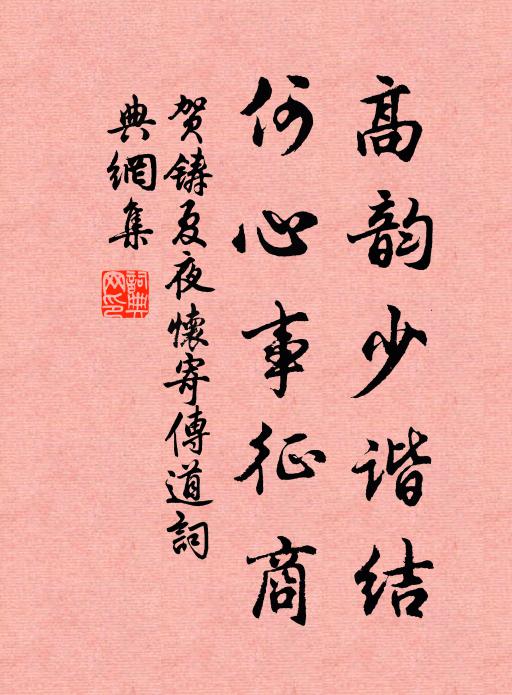 高韵少谐结
何心事征商
贺铸夏夜怀寄傅道詞
典網集
詞典網印